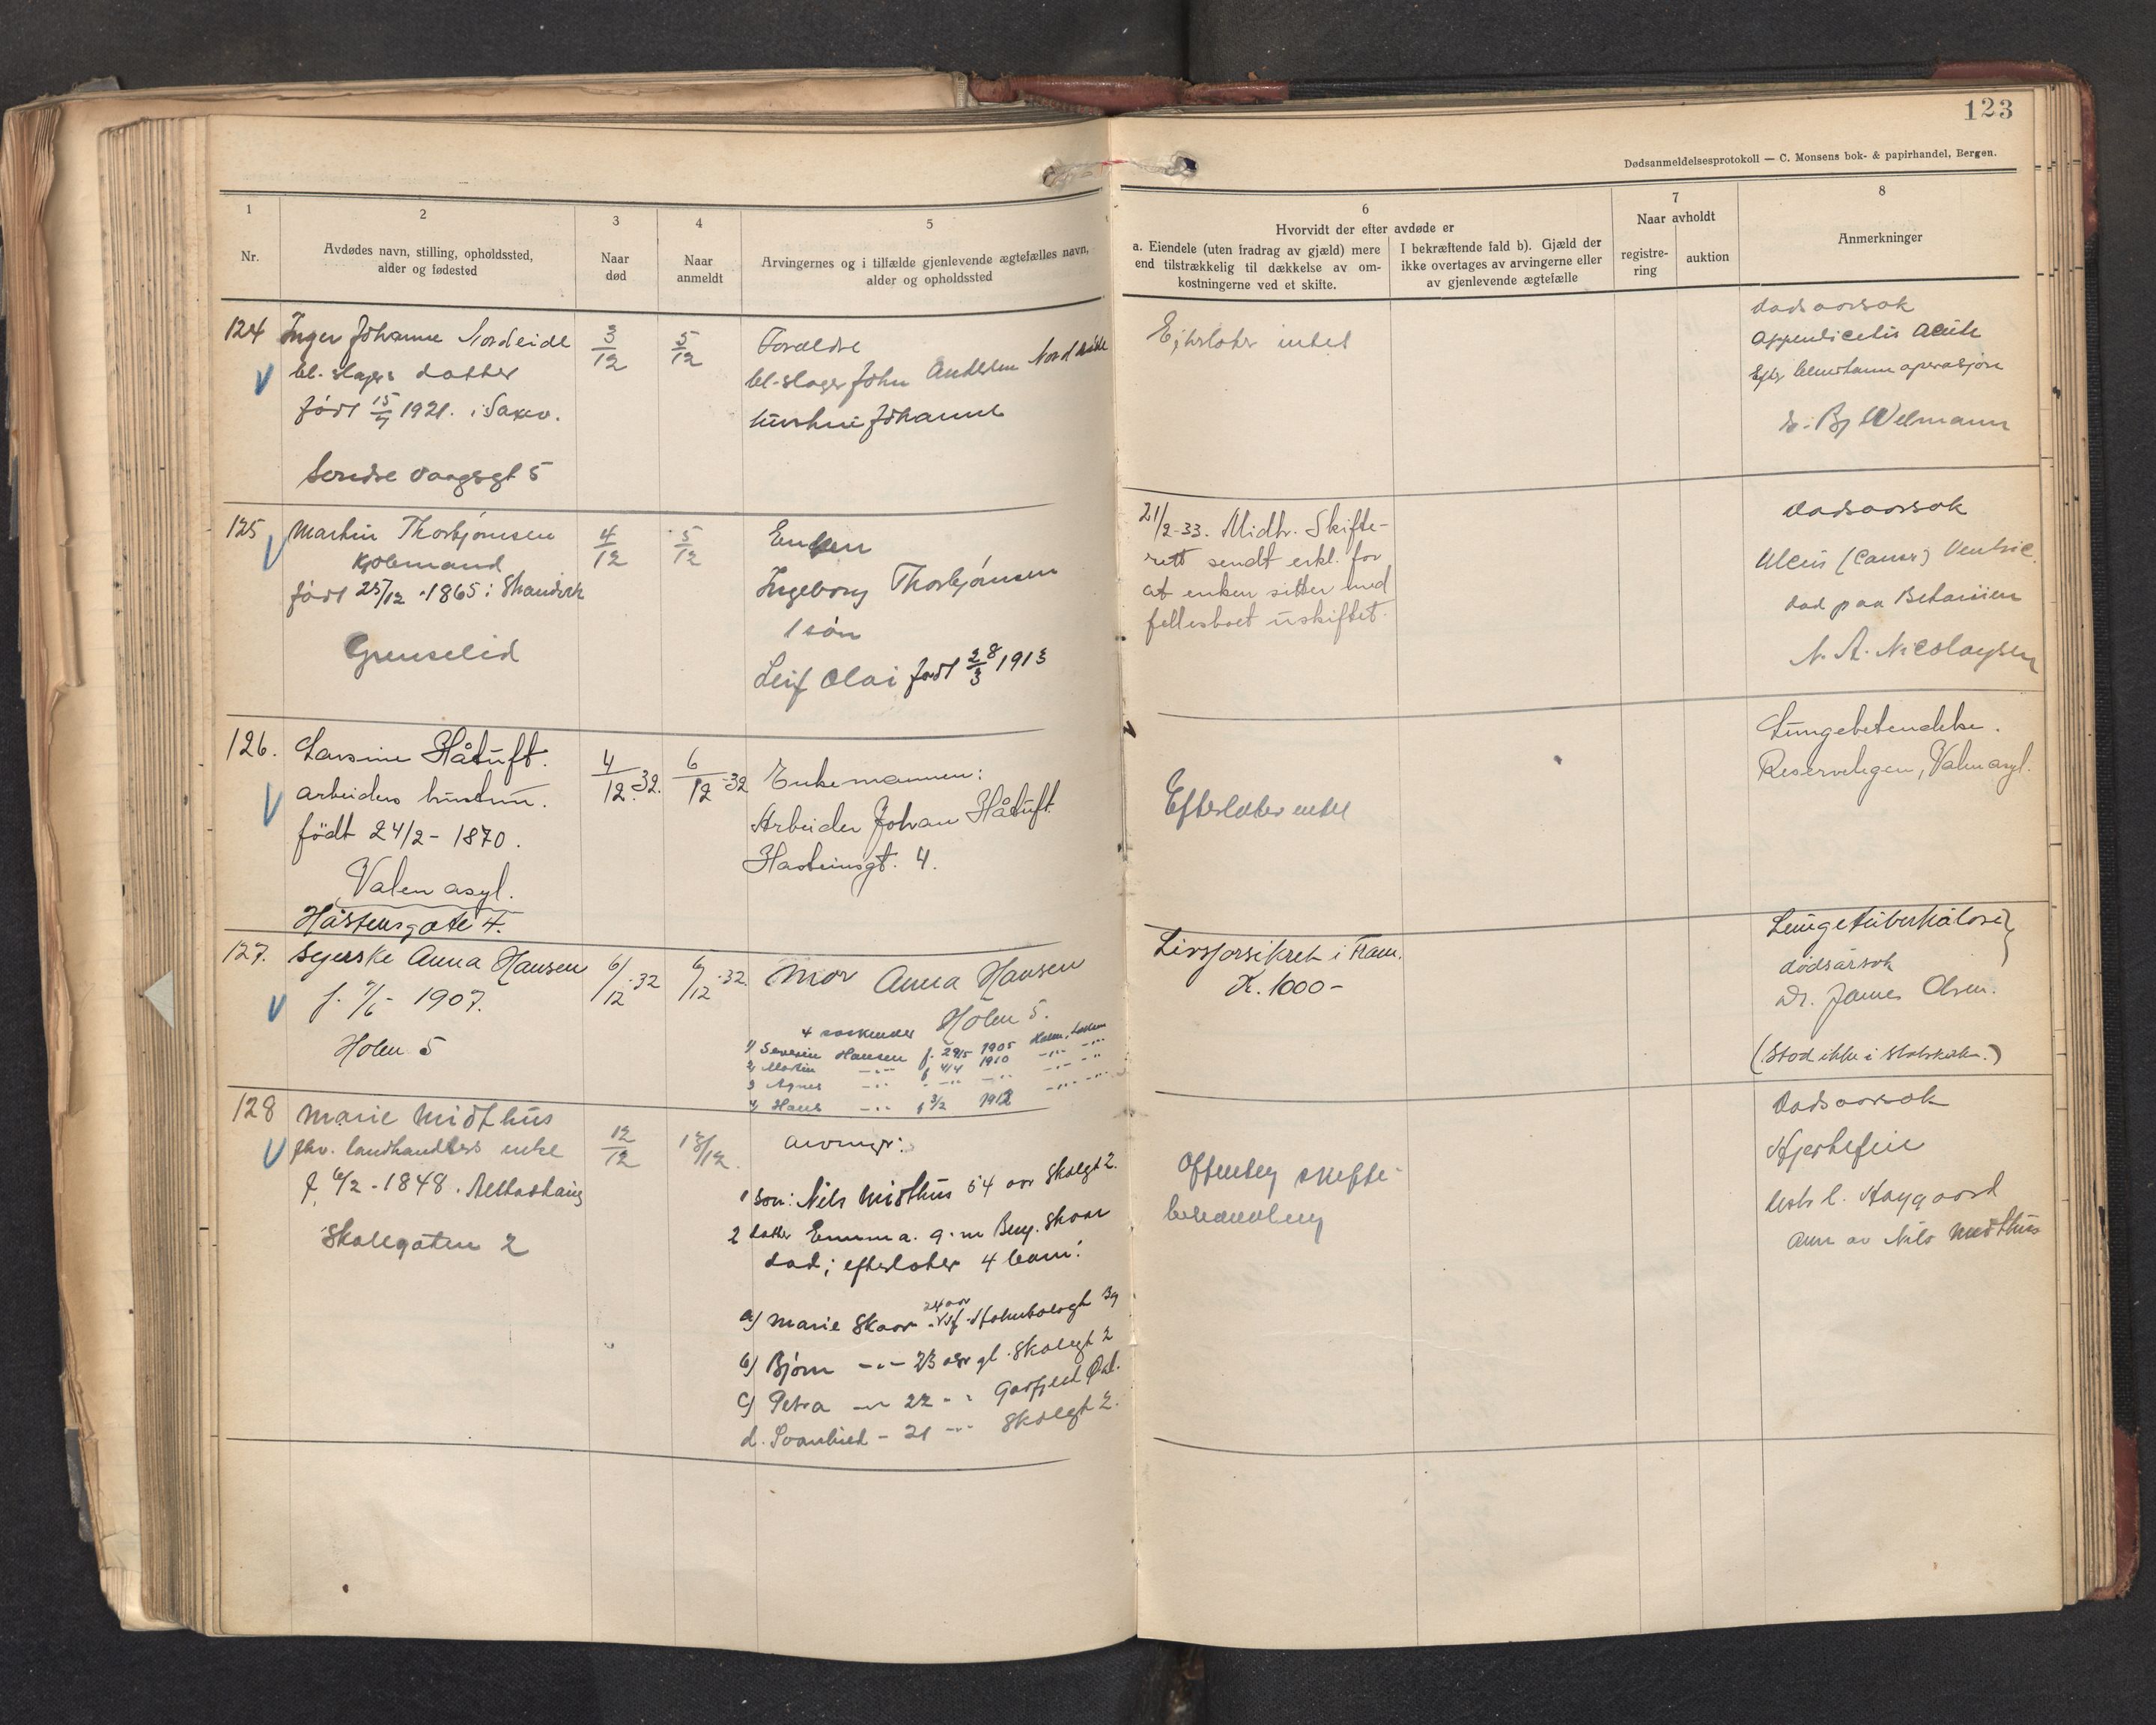 123
Dødsanmeldelsesprotokoll — C. Monsens bok- & papirhandel, Bergen.
1
Nr.
2
Avdødes navn, stilling, opholdssted,
alder og fødested
3
Naar
død
4
Naar
anmeldt
5
Arvingernes og i tilfælde gjenlevende ægtefælles navn,
alder og opholdssted
6
Hvorvidt der efter avdøde er
a. Eiendele (uten fradrag av gjæld) mere
end tilstrækkelig til dækkelse av om-
kostningerne ved et skifte.
I bekræftende fald b). Gjæld der
ikke overtages av arvingerne eller
av gjenlevende ægtefælle
7
Naar avholdt
registre-
ring
auktion
8
Anmerkninger
124
Inger Johanne Nordeide
datter
født 15/7 1921. i
Søndre Vaagsgt 5
3/12
5/12
Foreldre
John Andersen Nordeide
hustru Johanne
Efterlater intet
dødsaarsak
Appendicitis Acuta
operasjon
125
Martin Thorbjørnsen
født 25/12 1865 i
4/12
5/12
Enken
Ingeborg Thorbjørnsen
1 søn
Leif Olai født 28/3 1913
21/2-33. Midh. Skifte-
rett sendt erkl. for
at enken sitter med
fellesboet uskiftet.
dødsaarsak
Ulcus (Cancer) Ventric
død paa Betanien
N. A. Nicolaysen
126.
Larsine Håtuft.
arbeiders hustru.
født 24/2- 1870.
Valen asyl.
Håsteinsgate 4.
4/12.-32.
6/12-32
Enkemannen:
Arbeider Johan Håtuft
Hasteinsgt. 4.
Efterlater intet
Lungebetendelse.
Reservelegen, Valen asyl.
127.
Syerske Anna Hansen
1907.
Holen 5
6/12-32
6/12-32.
Mor Anna Hansen
Holen 5.
4 søskender
1) Severin Hansen f. 29/5 1905
2) Martin -"- f 4/4 1910 -"- -"-
3 Agnes -"- - -"- -"- -"- -"-
4) Hans -"- f 3/2 1912 -"- -"-
Livsforsikret i Fram.
Kr. 1000-
Lungetuberkulose
dødsårsak
Dr. James Olsen.
(Stod ikke i )
128
Marie Midthus
fhv. landhandlers enke
f. 6/2 - 1848.
Skolegaten 2
12/12
13/12.
Arvinger:
1 Søn: Nils Midthus 54 aar Skolegt 2.
2 datter Emma. g. m Skaar
død; efterlater 4 barn:
a) Marie Skaar 24 aar
b) Bjørn -"- 23 aar gl. Skolegt 2
c) Petra -"- 22 - "
d. Svanhild - 21 -"- Skolegt 2.
Offentlig skifte-
behandling
dødsaarsak
Hjertefeil
Anm av Nils Midthus